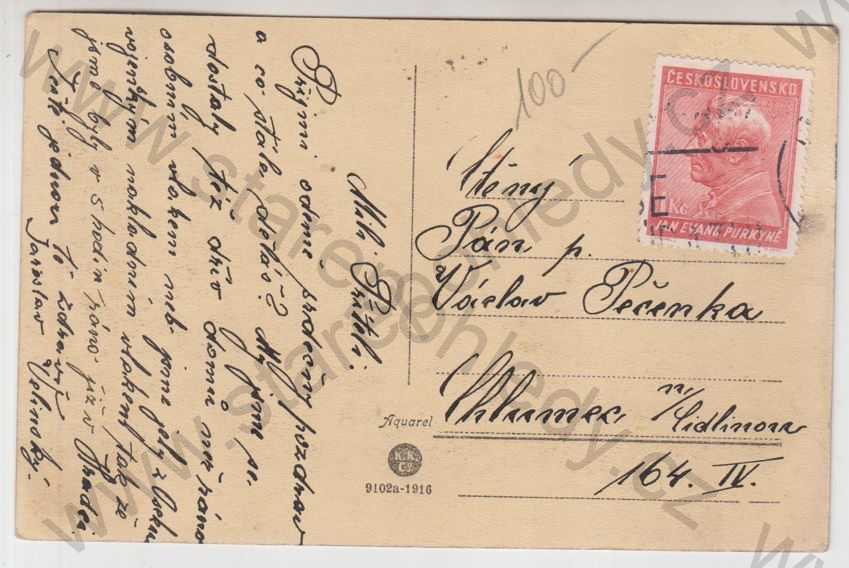 Milý Příteli
Přijmi odemě srdečný pozdrav
a co stále děláš? My jsme se
dostaly též dřív domů než ráno
osobním vlakem neb jsme jely z
vojenským nákladním vlakem takže
jsme byly v 5 hodin ráno již v Hradci.
Ještě jednou Tě zdraví
Jaroslav Velínský.
100
ČESKOSLOVENSKO
1 Kč
JAN EVANG. PURKYNĚ
Ctěný
Pán p.
Václav Pečenka
Chlumec n/Cidlinou
164. IV.
Aquarel
K.K.
9102a-1916
www.starepohledy.cz